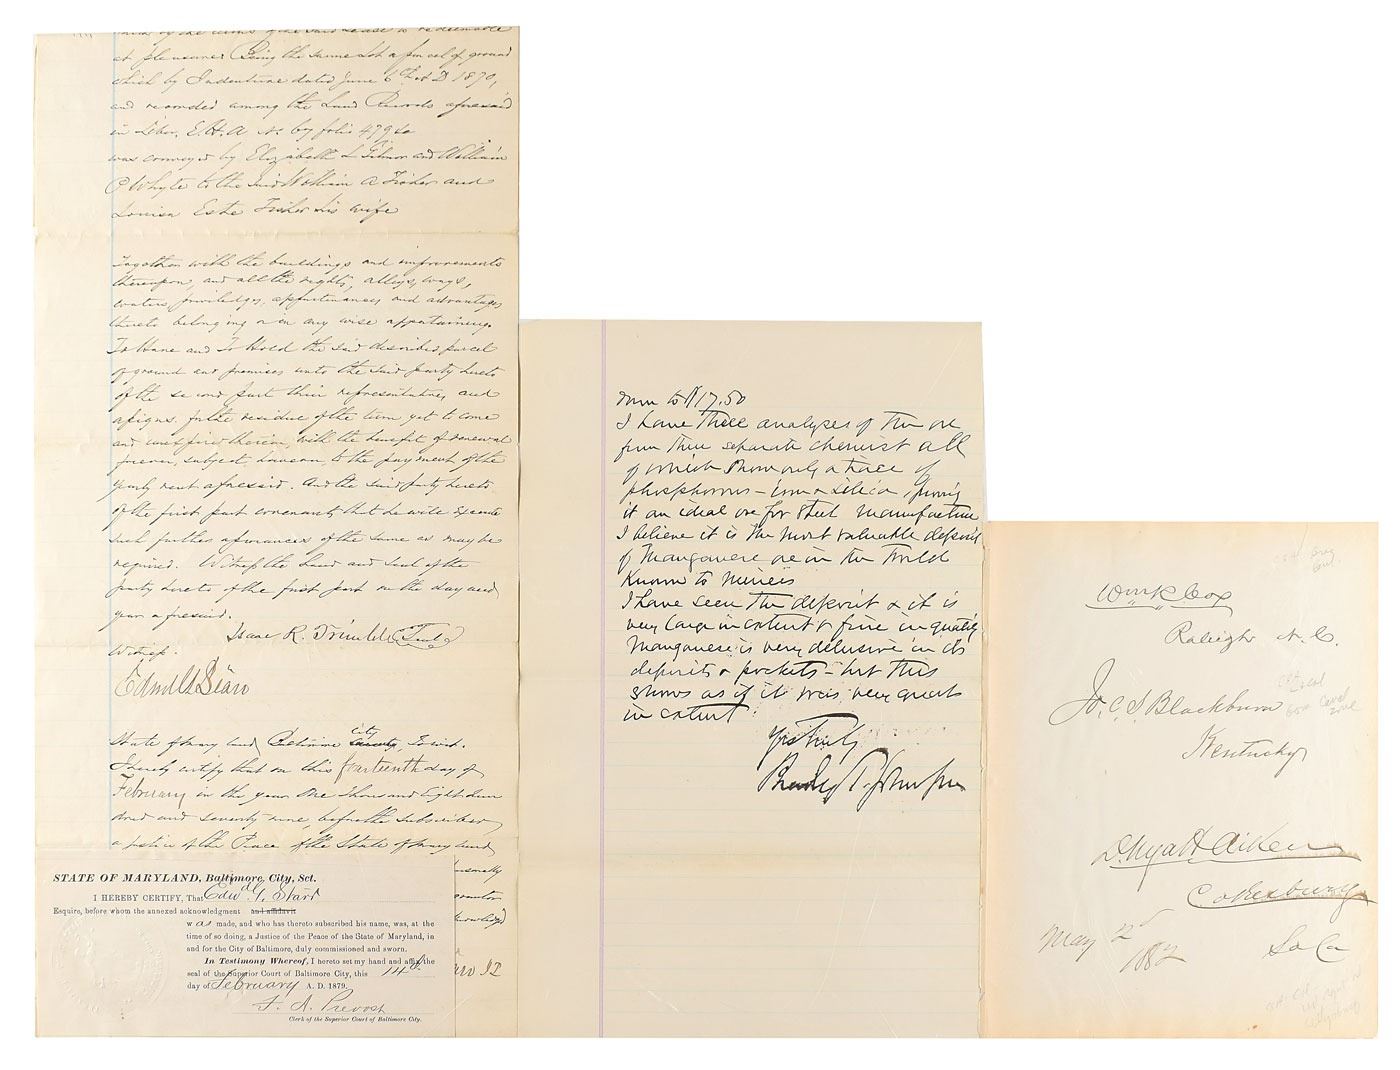 at pleasure Being the same Lot or parcel of ground
which by Indenture dated June 6th A D 1870,
and recorded among the Land Records aforesaid
in Liber. E.H.A No by folio 479 &c
was conveyed by Elizabeth L Gilmor and William
P Whyte to the said William A Fisher and
Louisa Este Fisher his wife
Together with the buildings and improvements
thereupon, and all the rights, alleys, ways,
waters, priviledges, appurtenances and advantages
thereto belonging or in any wise appertaining.
To Have and To Hold the said described parcel
of ground and premises unto the said party hereto
of the second part their representatives and
assigns for the residue of the term yet to come
and unexpired therein, with the benefit of renewal
forever, subject, however, to the payment of the
yearly rent aforesaid. And the said party hereto
of the first part covenants that he will execute
such further assurances of the same as may be
required. Witness the hand and seal of the
party hereto of the first part on the day and
year aforesaid.
Isaac R. Trimble Seal
Witness.
Edwd G Starr
State of Maryland, Baltimore City County To wit.
I hereby certify that on this fourteenth day of
February in the year One Thousand Eight hun
dred and seventy nine, before the subscriber
a Justice of the Peace of the State of Maryland
STATE OF MARYLAND, Baltimore, City, Sct.
I HEREBY CERTIFY, That Edwd G. Starr
Esquire, before whom the annexed acknowledgment and affidavit
was made, and who has thereto subscribed his name, was, at the
time of so doing, a Justice of the Peace of the State of Maryland, in
and for the City of Baltimore, duly commissioned and sworn.
In Testimony Whereof, I hereto set my hand and affix the
seal of the Superior Court of Baltimore City, this 14th
day of February A. D. 1879.
F. A. Prevost
Clerk of the Superior Court of Baltimore City.
to $17.50
I have three analyses of this ore
from three separate chemist all
of which show only a trace of
phosphorous - iron & silica, proving
it an ideal ore for steel manufacture
I believe it is the most valuable deposit
of Manganese ore in the world
Known to miners
I have seen the deposit & it is
very large in extent & fine in quality
Manganese is very delusive in its
deposits & pockets - but this
shows as if it was very great
in extent
Yrs Truly
Bradley T. Johnson
Wm R. Cox
Raleigh N. C.
Jo. C. S. Blackburn
Kentucky
D. Wyatt Aiken
Cokesbury
So Ca
May 2
1882